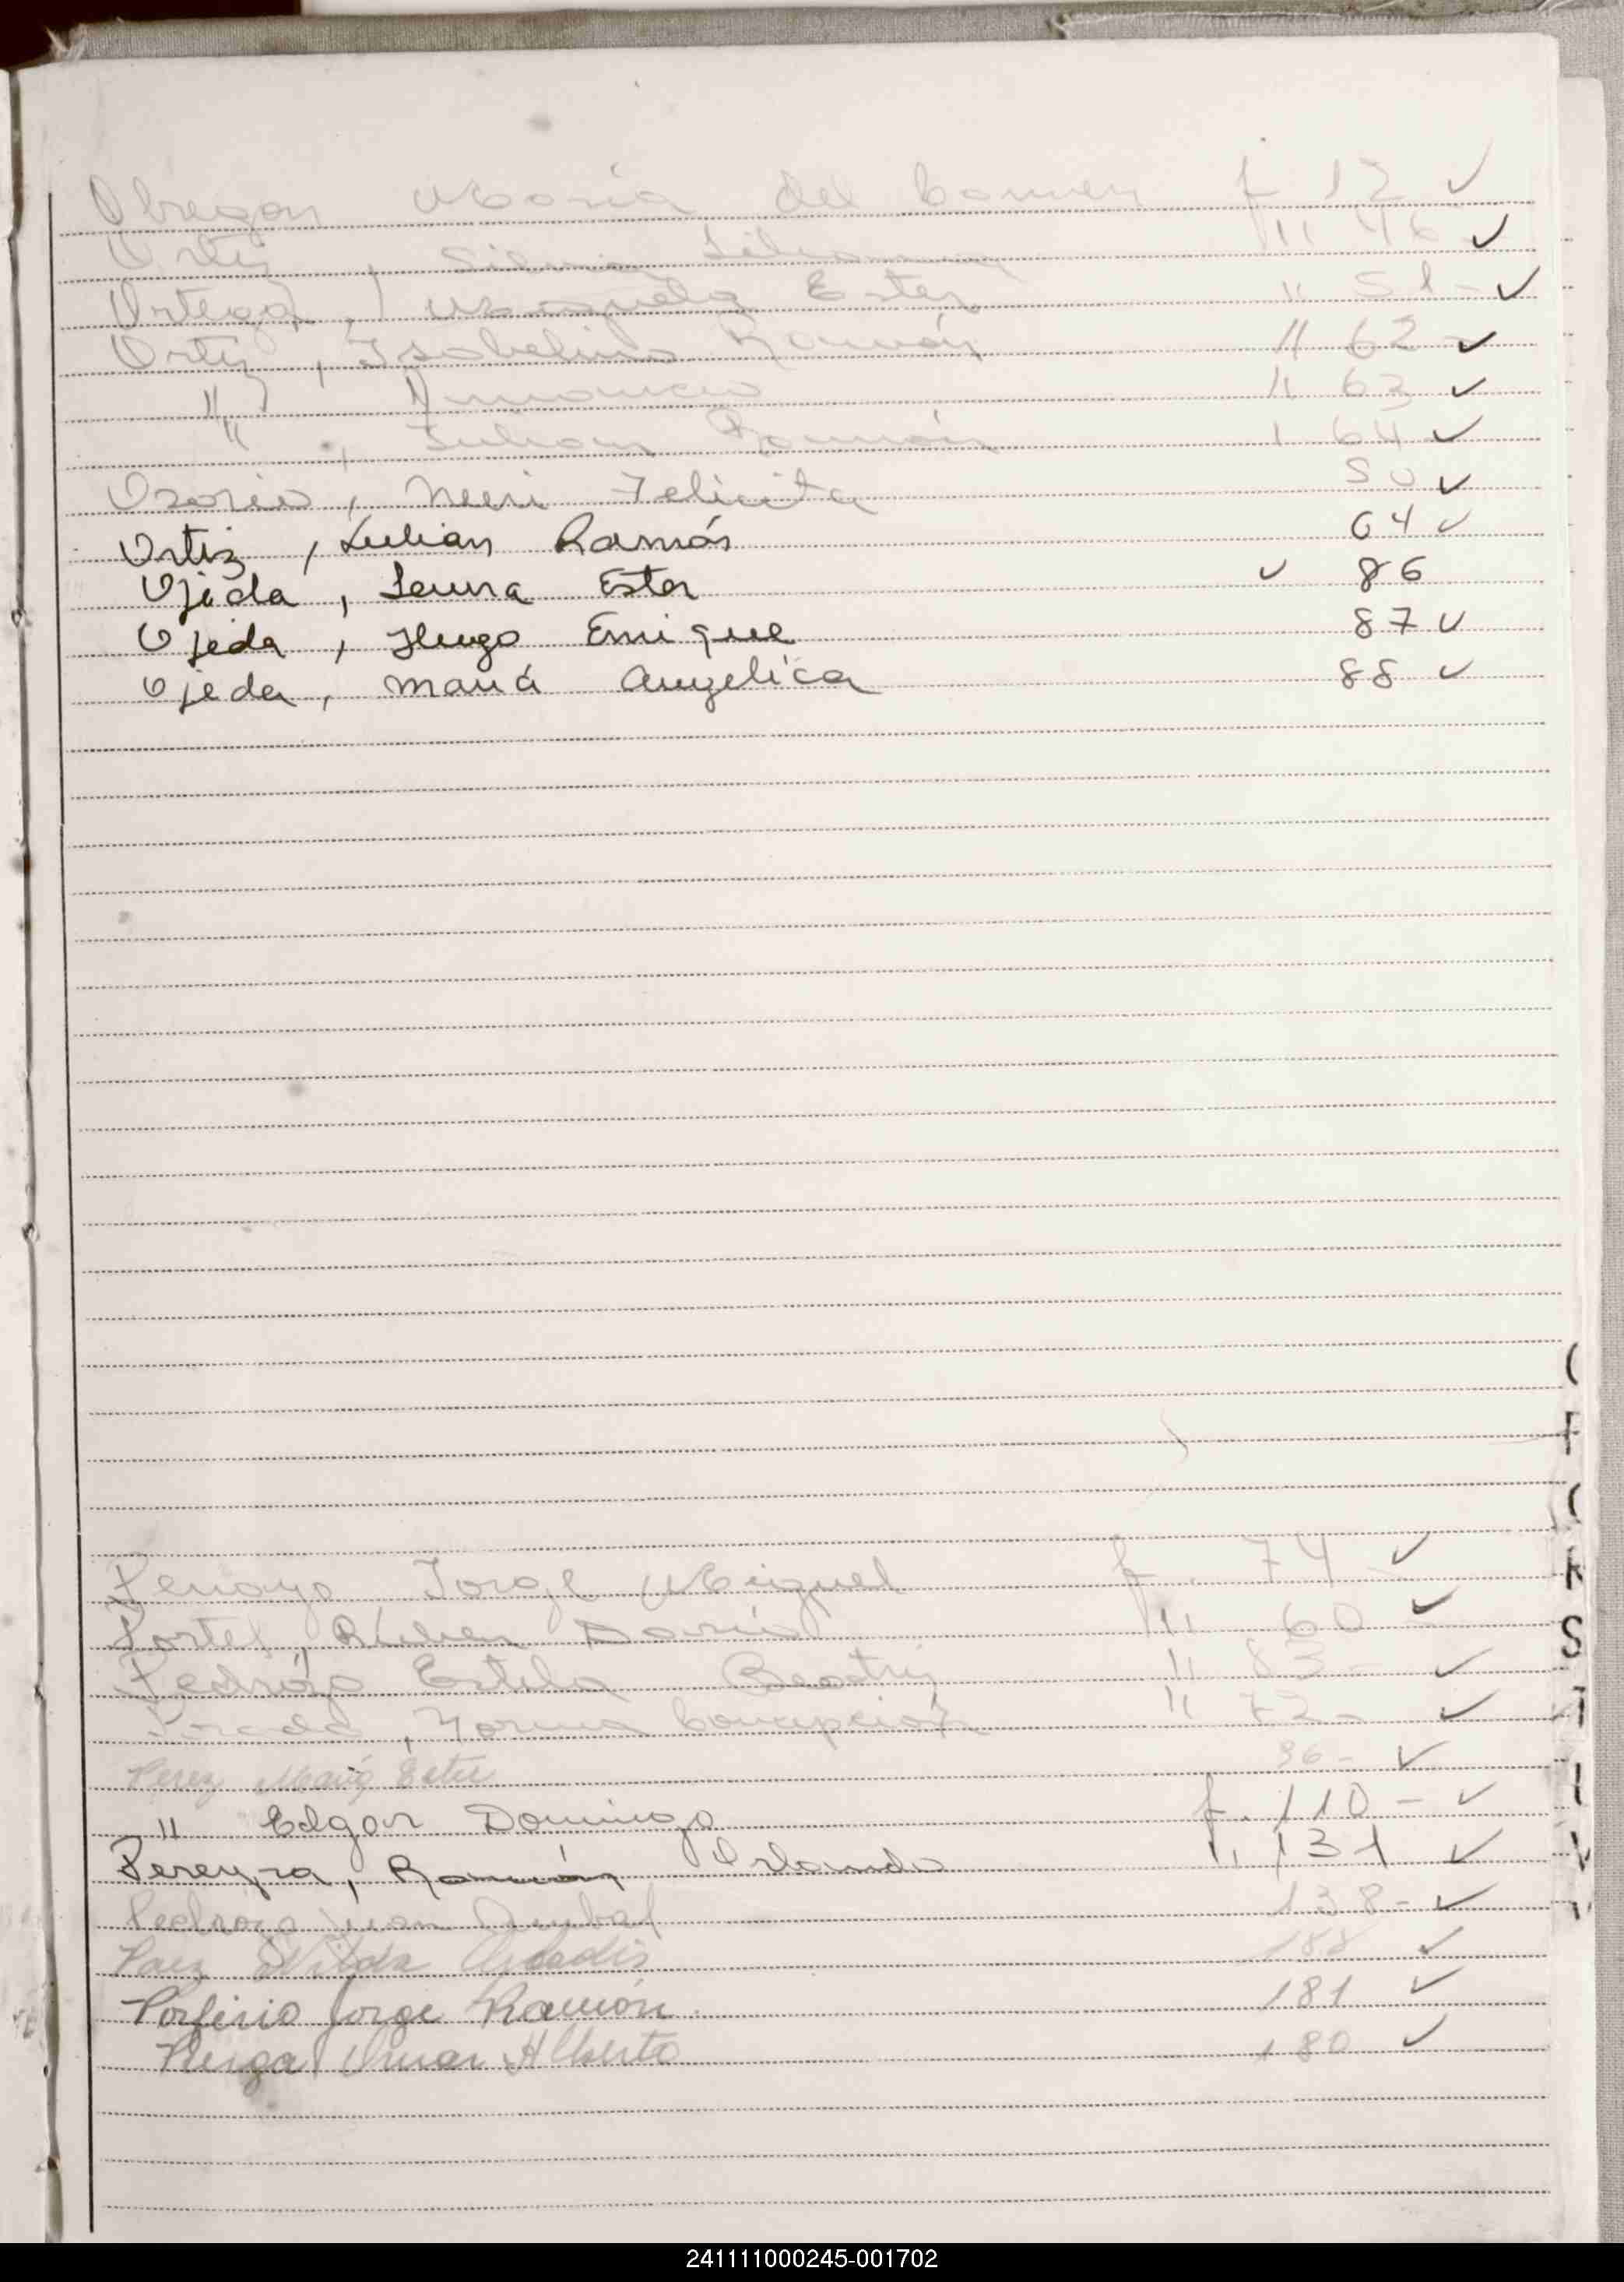 Obregon María del Carmen f 12 ✓
Ortiz, Silvia Liliana " 46 ✓
Ortega, Ester " 51 - ✓
Ortiz, Isabelino Ramón " 62 - ✓
" " 63 ✓
", Julian Ramón 64 ✓
Osorio, Neri Felicita 50 ✓
Ortiz, Julian Ramón 64 ✓
Ojeda, Laura Ester ✓ 86
Ojeda, Hugo Enrique 87 ✓
Ojeda, María Angelica 88 ✓
Penayo Jorge Miguel f. 74 ✓
Portel, Ruben Dario " 60 ✓
Pedrozo Estela Beatriz " 83 - ✓
, Norma Concepción " 72 - ✓
Perez María Ester 96 - ✓
" Edgar Domingo f. 110 - ✓
Pereyra, Ramón Orlando " 131 ✓
Pedrozo Juan Anibal 138 - ✓
Paez Nilda 188 ✓
Porfirio Jorge Ramón 181 ✓
Omar Alberto 180 ✓
S
T
I
V
241111000245-001702